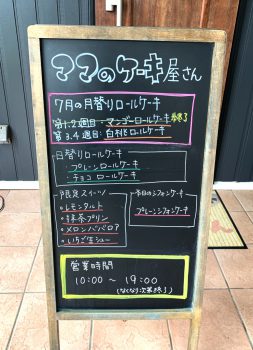 ママのケーキ屋さん
7月の月替りロールケーキ
第1.2週目:マンゴーロールケーキ 終了
第3.4週目:白桃ロールケーキ
日替りロールケーキ
プレーンロールケーキ
チョコロールケーキ
限定スイーツ
レモンタルト
抹茶プリン
メロンババロア
いちご生シュー
本日のシフォンケーキ
プレーンシフォンケーキ
営業時間
10:00 〜 19:00
(なくなり次第終了)